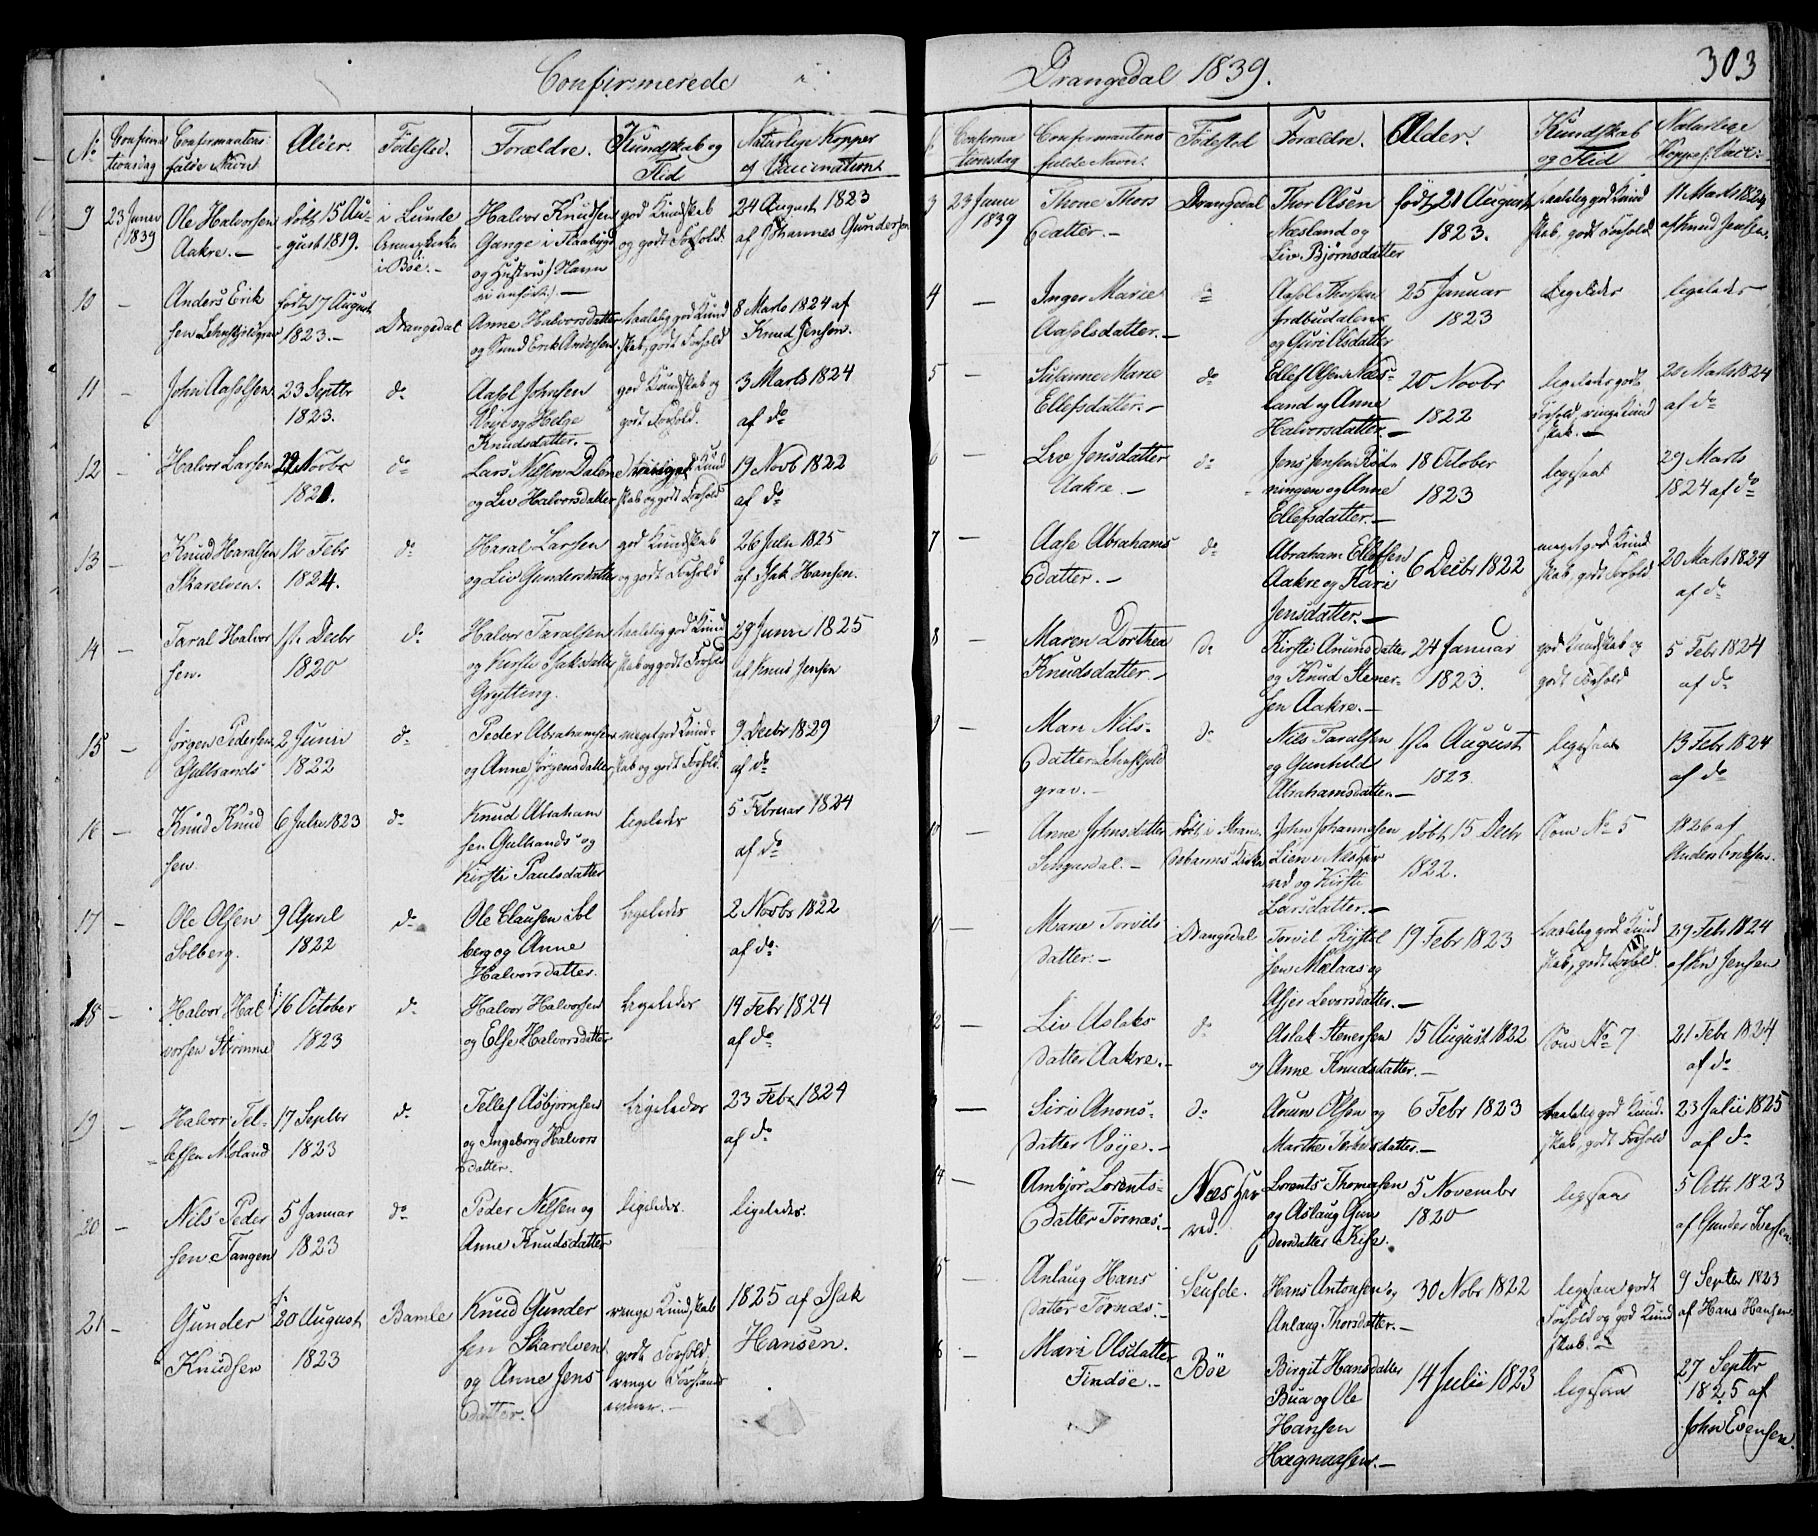 Confirmerede i
Drangedal 1839.
303
No
Confirmationsdag
Confirmantens fulde Navn
Alder.
Fødested.
Forældre.
Kundskab og Flid
Naturlige Kopper og Vaccination.
9
23 Junii 1839
Ole Halvorsen Aakre. —
født 15 August 1819.
i Lunde Annexkirke i Bøe. —
Halvor Knudsen Gange i
og Hustru
god Kundskab og godt Forhold.
24 August 1823 af Johannes Gundersen
10 —
Anders Eriksen
født 17 August 1823. —
Drangedal
Anne Halvorsdatter og Erik Andersen
taalelig god Kundskab, godt Forhold
8 Marts 1824 af Knud Jensen.
11 —
John Aasolsen
23 Septbr 1823.
do
Aasol Johnsen Voje og Helge Knudsdatter. —
god Kundskab og godt Forhold.
3 Marts 1824 af do
12 —
Halvor Larsen
Novbr 1821.
do
Lars Nilsen Dalen og Liv Halvorsdatter
Kundskab og godt Forhold
19 Novb 1822 af do
13 —
Knud Haralsen Skarelven.
12 Febr 1824.
do
Haral Larsen og Liv Gundersdatter
god Kundskab og godt Forhold
26 Julii 1825 af Isak Hansen.
14 —
Taral Halvorsen.
1ste Decbr 1820
do
Halvor Taralsen og Kirsti Isaksdatter Grytting.
taalelig god Kundskab og godt Forhold
29 Junii 1825 af Knud Jensen
15 —
Jørgen Pedersen Gulsands
2 Junii 1822
do
Peder Abrahamsen og Anne Jørgensdatter
meget god Kundskab og godt Forhold.
9 Decbr 1829 af do
16 —
Knud Knudsen.
6 Julii 1823
do
Knud Abrahamsen Gulsands og Kirsti Paulsdatter
ligeledes
5 Februar 1824 af do
17 —
Ole Olsen Solberg.
9 April 1822
do
Ole Clausen Solberg og Anne Halvorsdatter.
ligeledes
2 Novbr 1822 af do.
18 —
Halvor Halvorsen Strømme
16 October 1823
do
Halvor Halvorsen og Else Halvorsdatter
ligeledes
14 Febr 1824 af do
19 —
Halvor Tellefsen Moland
17 Septbr 1823
do
Tellef Asbjørnsen og Ingeborg Halvorsdatter.
ligeledes
23 Febr 1824 af do
20 —
Nils Pedersen Tangen
5 Januar 1823
do
Peder Nilsen og Anne Knudsdatter
ligeledes.
ligeledes.
21 —
Gunder Knudsen
20 August 1823
Bamle
Knud Gundersen Skarelven og Anne Jensdatter.
ringe Kundskab godt Forhold. ringe Forstands evner. —
1825 af Isak Hansen.
Confirmationsdag
Confirmantens fulde Navn.
Fødested
Forældre.
Alder.
Kundskab og Flid
Naturlige Kopper og Vacci-
3
23 Junii 1839
Thone Thorsdatter. —
Drangedal
Thor Olsen Næsland og Liv Bjørnsdatter
født 21 August 1823.
taalelig god Kundskab, godt Forhold
11 Marts 1824 af Knud Jensen.
4 —
Inger Marie Aasolsdatter. —
do
Aasol Thorsen og Guri Olsdatter
25 Januar 1823
Ligeledes
ligeledes
5 —
Susanne Marie Ellefsdatter. —
do
Ellef Olsen Næsland og Anne Halvorsdatter. —
20 Novbr 1822
ligeledes godt Forhold, ringe Kundskab. —
20 Marts 1824 af do
6 —
Liv Jensdatter Aakre. —
do
Jens Jensen Rødningen og Anne Ellefsdatter. —
18 October 1823
ligesaa
29 Marts 1824 af do
7 —
Aase Abrahamsdatter. —
do
Abraham Ellefsen Aakre og Kari Jensdatter. —
6 Decbr 1822
meget god Kundskab, godt Forhold
20 Marts 1824 af do
8 —
Maren Dorthea Knudsdatter. —
do
Kirsti Amundsdatter og Knud Stenersen Aakre. —
24 Januar 1823.
god Kundskab og godt Forhold
5 Febr 1824 af do
9 —
Mari Nilsdatter
do
Nils Taralsen og Gunhild Abrahamsdatter. —
1ste August 1823
ligesaa
13 Febr 1824 af do
10 —
Anne Johnsdatter
født i Kirke
John Johannesen Lien i Næsherred og Kirsti Larsdatter. —
født 15 Decbr 1822.
Som No 5
1826 af Anders Eriksen.
11 —
Marie Torvilsdatter. —
Drangedal
Torvil og Asjer Levorsdatter. —
19 Febr 1823
taalelig god Kundskab, godt Forhold.
29 Febr 1824 af Kn Jensen
12 —
Liv Aslaksdatter Aakre. —
do
Aslak Stenersen og Anne Knudsdatter. —
15 August 1822
Som No 7
21 Febr 1824 af do
—
Siri Anonsdatter Voje. —
do
Anun Olsen og Marthe
6 Febr 1823
taalelig god Kundskab, godt Forhold
23 Julii 1825 af do
14 —
Ambjør Lorentsdatter Tørnæs. —
Næsherred.
Lorents Thomasen og Aslaug Gundersdatter
5 November 1820
ligesaa
5 Octb 1823 af Gunder Iversen.
15 —
Anlaug Hansdatter Tørnæs. —
Seufde.
Hans Antonsen og Anlaug Thorsdatter. —
30 Nobr 1822
ligesaa godt Forhold og god Kundskab. —
9 Septbr 1823 af Hans Hansen
6 —
Mari Olsdatter Findøe. —
Bøe
Birgit Hansdatter Bua og Ole Hansen Hægnaasen. —
14 Julii 1823
ligesaa
27 Septbr 1825 af John Evensen.